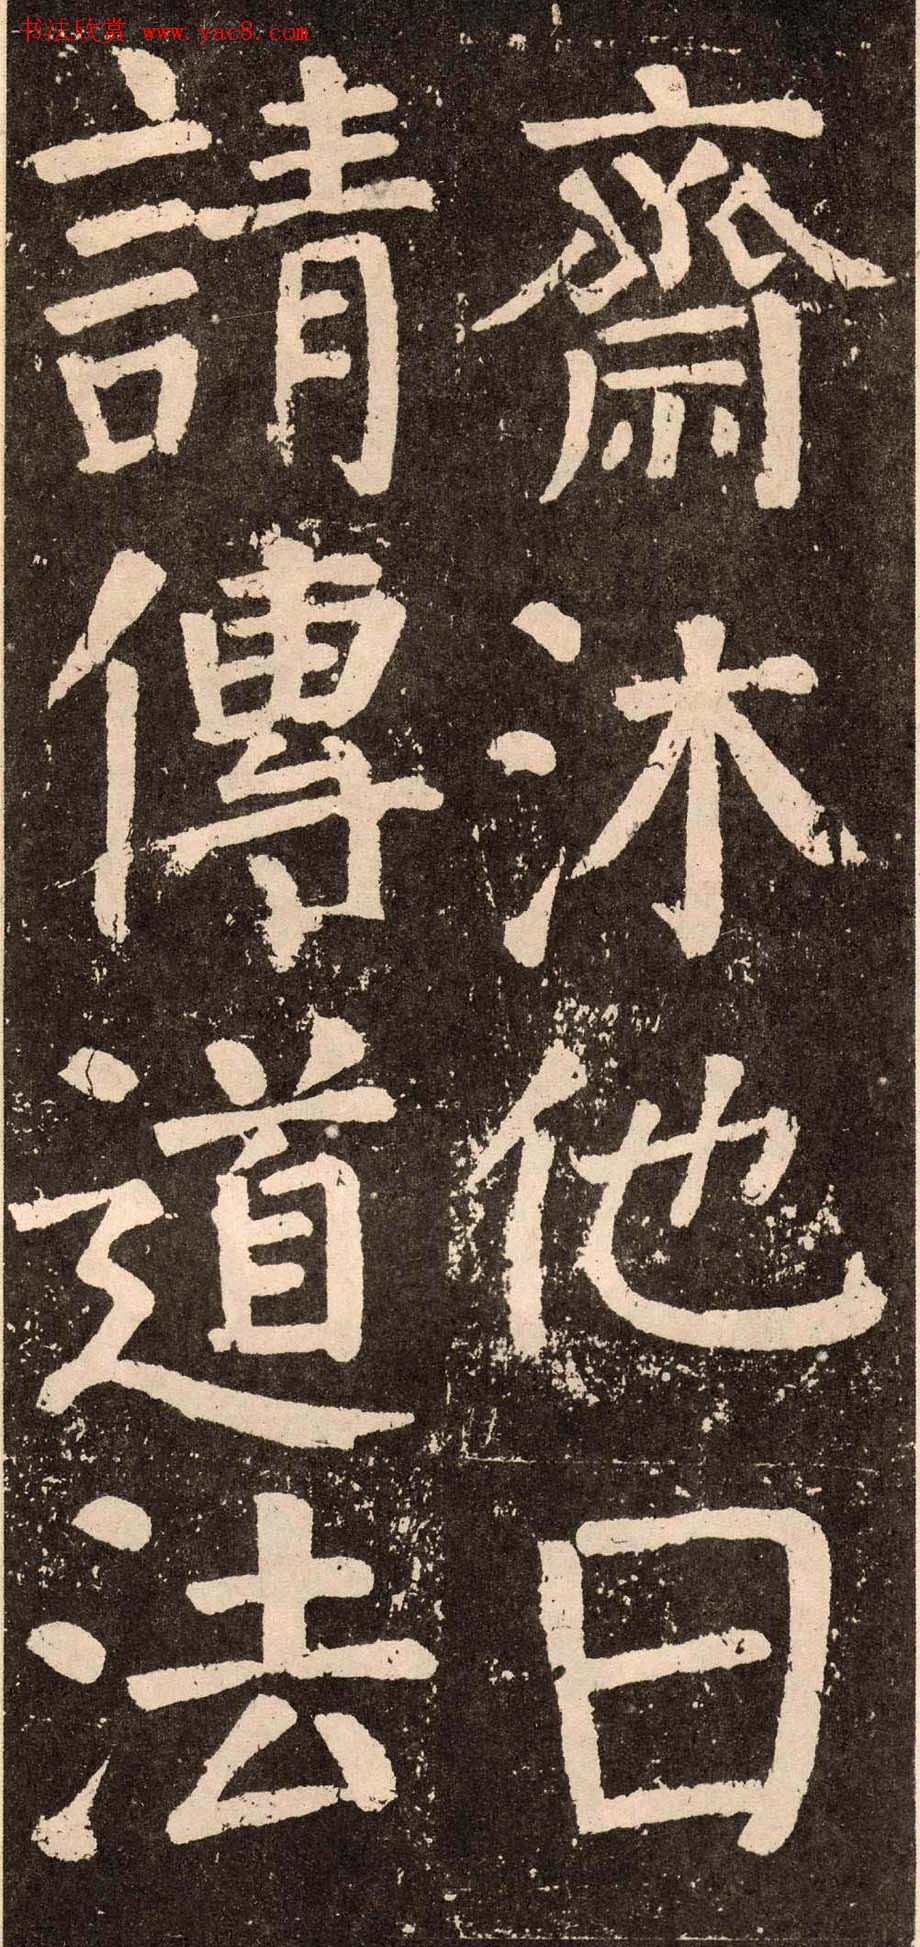 书法欣赏 www.yac8.com
齋沐他日
請傳道法